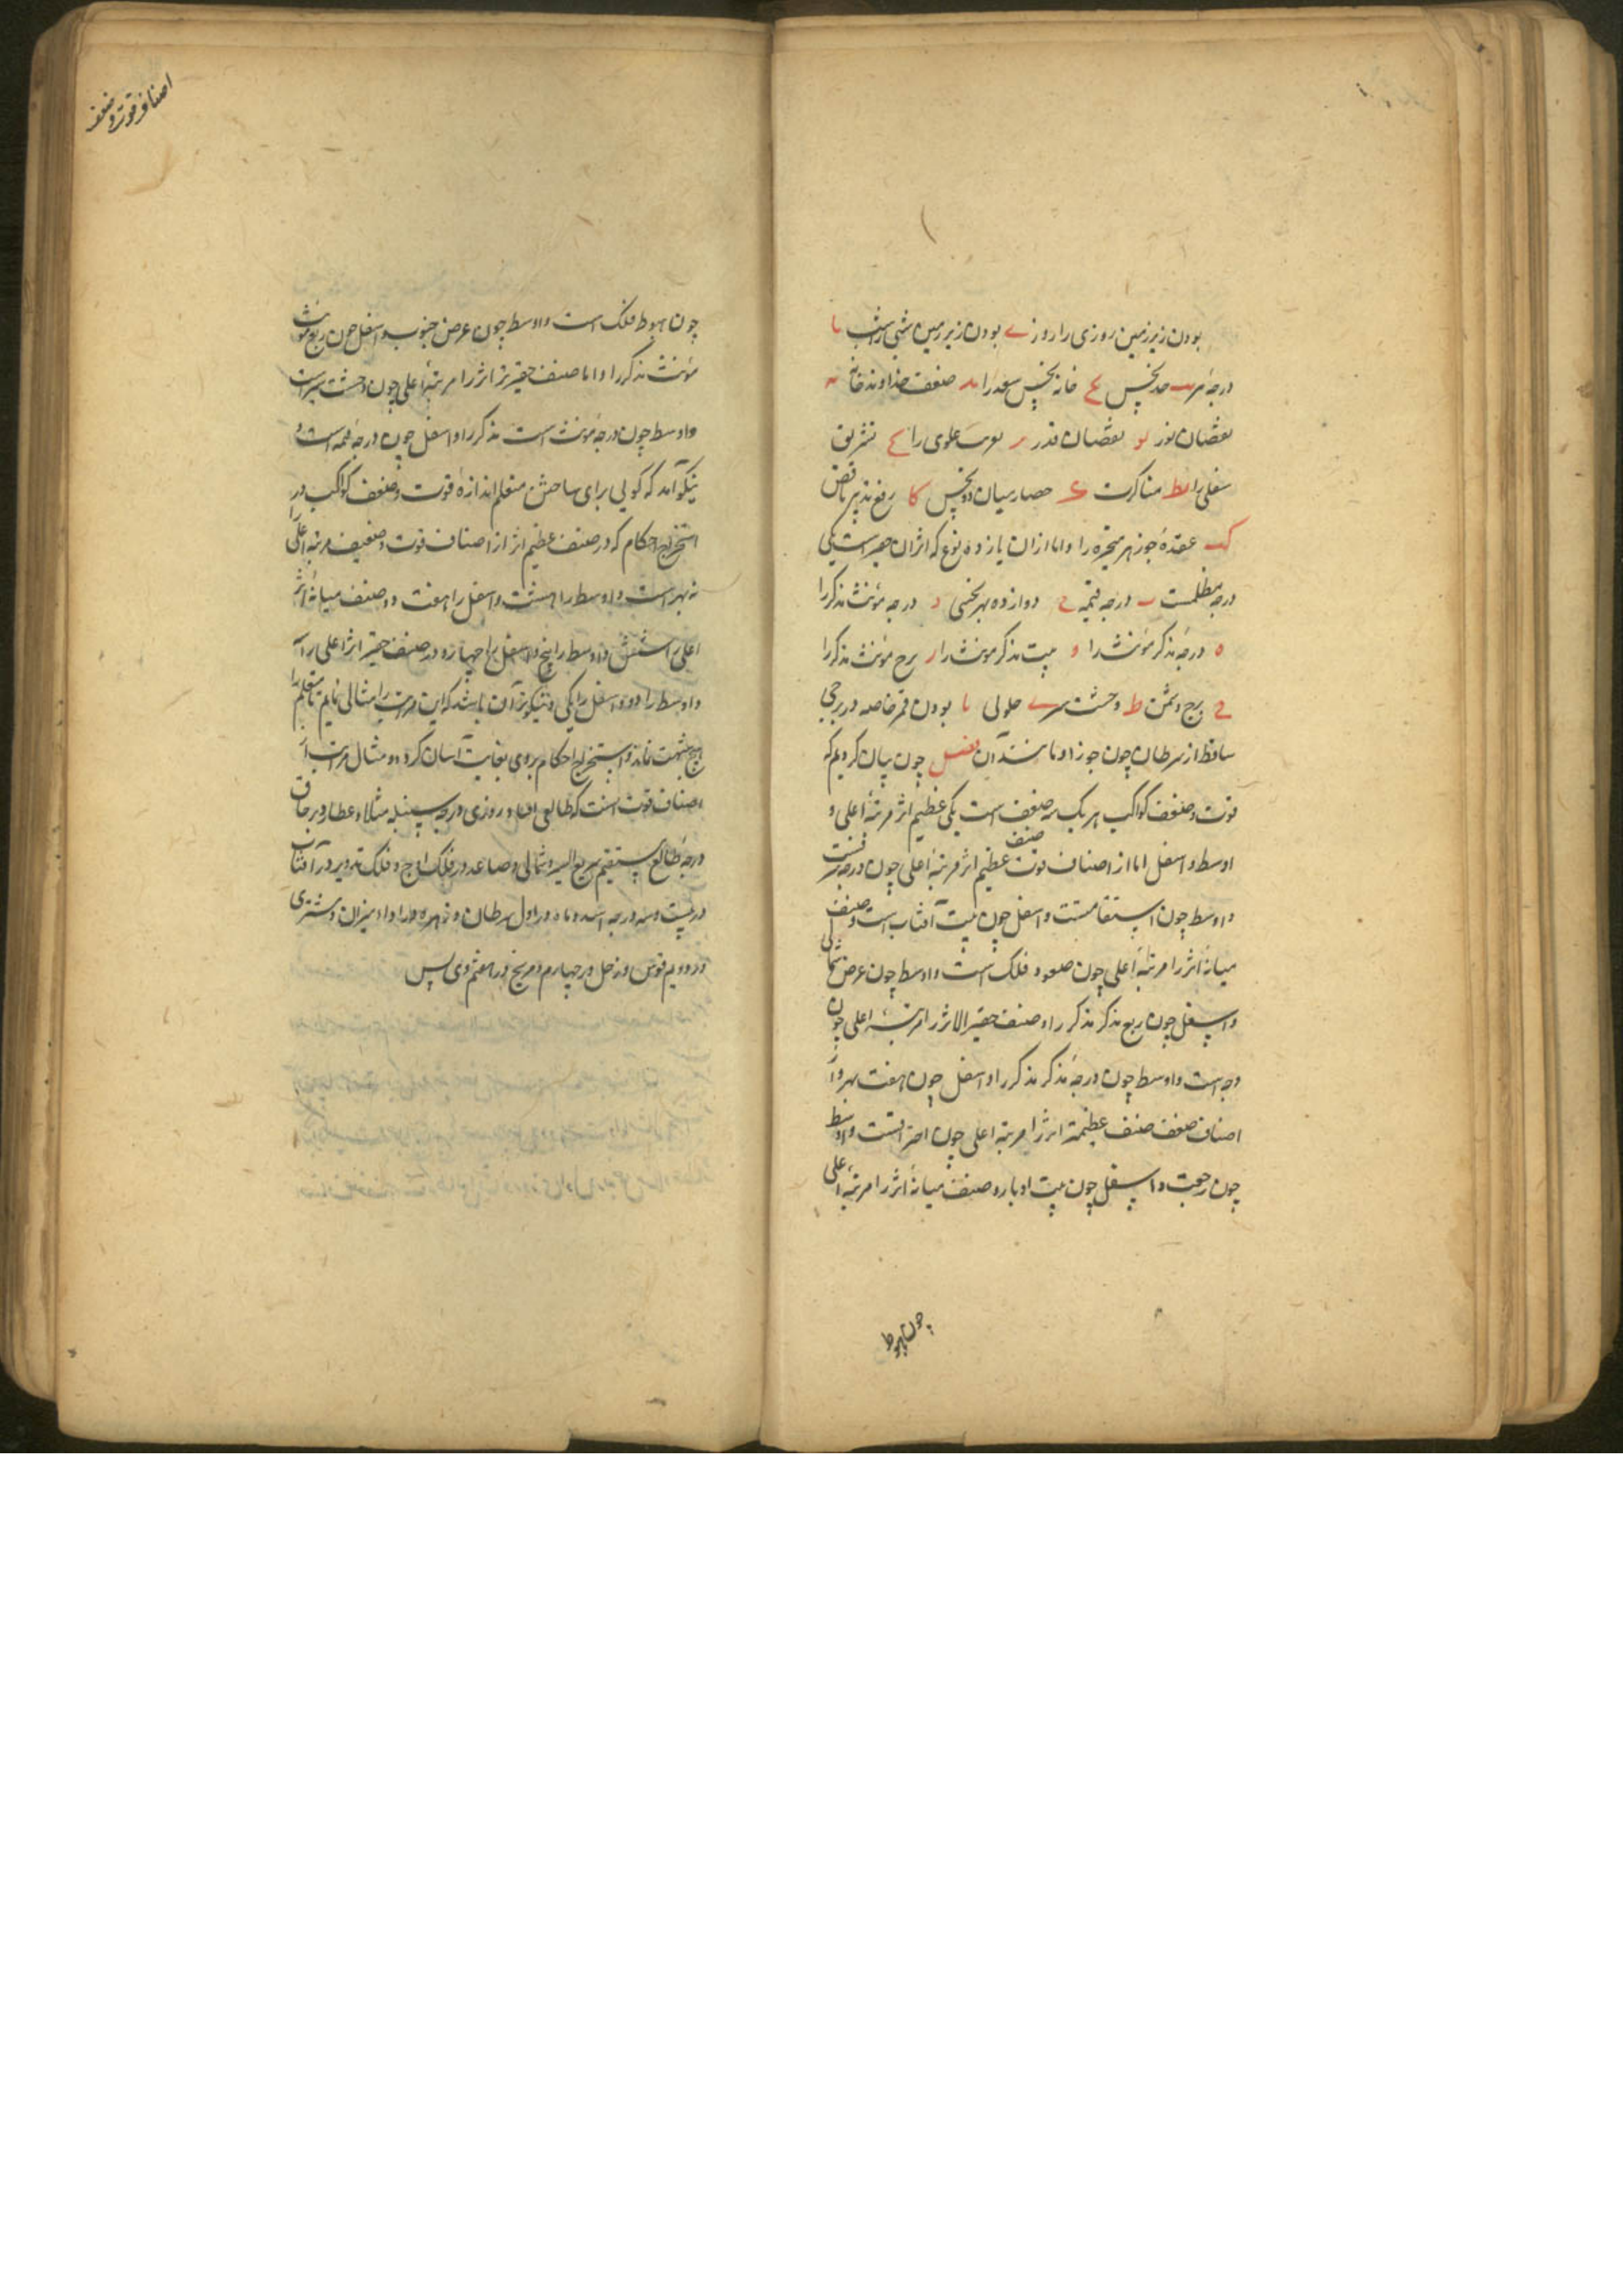 بودن زیر زمین روزی را روز ی بودن زیر زمین شبی را شب یا
درجهٔ حد نحس یح خانه نحس سعد را ید ضعف خداوند خانه یه
نقصان نور یو نقصان قدر یر علوی را یح تشریق
سفلی را یط مناکرت ک حصار میان دو نحس کا رفع تدبیر ناقص
کب عقدهٔ جوزهر متحیره را و اما ازان یازده نوع که اثر آن حقیر است یکی
درجهٔ مظلمست ب درجهٔ قتمه ج دوازده بهر نحسی د درجهٔ مؤنث مذکر را
ه درجهٔ مذکر مؤنث را و بیت مذکر مونث را ز برج مؤنث مذکر را
ح برج دشمن ط وحشت سیر ی حلولی یا بودن قمر خاصه در برجی
ساقط از سرطان چون جوزا و مانند آن فصل چون بیان کردیم که
قوت و ضعف کواکب هر یک سه صنف است یکی عظیم اثر مرتبهٔ اعلی و
اوسط و اسفل اما از اصناف قوت صنف عظیم اثر مرتبهٔ اعلی چون درجهٔ شرفست
و اوسط چون استقامتست و اسفل چون بیت آفتاب است و صنف
میانه اثر را مرتبهٔ اعلی چون صعود فلک است و اوسط چون عرض شمالی
و اسفل چون ربع مذکر مذکر را و صنف حقیر الاثر را مرتبهٔ اعلی چون
وجه است و اوسط چون درجهٔ مذکر مذکر را و اسفل چون هفت بهر و اما
اصناف ضعف صنف عظیمة اثر را مرتبه اعلی چون احتراقست و اوسط
چون رجعت و اسفل چون بیت ادبار و صنف میانه اثر را مرتبهٔ اعلی
چون هبوط
اصناف قوت و ضعف
چون هبوط فلک است و اوسط چون عرض جنوب و اسفل چون ربع مونث
مؤنث مذکر را و اما صنف حقیرتر اثر را مرتبهٔ اعلی چون وحشت سیر است
و اوسط چون درجهٔ مؤنث است مذکر را و اسفل چون درجهٔ قتمه است و
نیکو آمد که گویی برای ساختن متعلم اندازهٔ قوت و ضعف کواکب در
استخراج احکام که در صنف عظیم اثر از اصناف قوت و ضعیف مرتبه اعلی را
نه بهر است و اوسط را هشت و اسفل را هفت و در صنف میانه اثر
اعلی را شش و اوسط را پنج و اسفل را چهار و در صنف حقیر اثر اعلی را سه
و اوسط را دو و اسفل را یکی و نیکوتر آن باشد که این مراتب را مثالی نمایم تا متعلم را
هیچ شبهت نماند و استخراج احکام بر وی بغایت آسان گردد و مثال مراتب
اصناف قوت آنست که طالعی افتاد روزی درجهٔ سنبله مثلا و عطارد بر حاق
درجهٔ طالع مستقیم سریع السیر و شمالی و صاعد در فلک اوج و فلک تدویر در آفتاب
در بیست و سه درجه اسد و ماه در اول سرطان و زهره در اول میزان و مشتری
در دویم قوس و زحل در چهارم و مریخ در هفتم وی پس